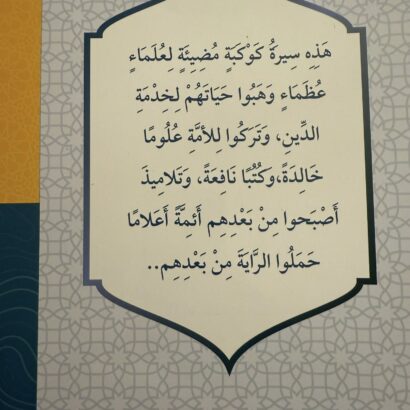 هَذِهِ سِيرَةُ كَوْكَبَةٍ مُضِيئَةٍ لِعُلَمَاءٍ
عُظَمَاءٍ وَهَبُوا حَيَاتَهُمْ لِخِدْمَةِ
الدِّينِ، وَتَرَكُوا لِلأُمَّةِ عُلُومًا
خَالِدَةً،وَكُتُبًا نَافِعَةً، وَتَلَامِيذَ
أَصْبَحوا مِنْ بَعْدِهِم أَئِمَّةً أَعْلامًا
حَمَلُوا الرَّايَةَ مِنْ بَعْدِهِم..